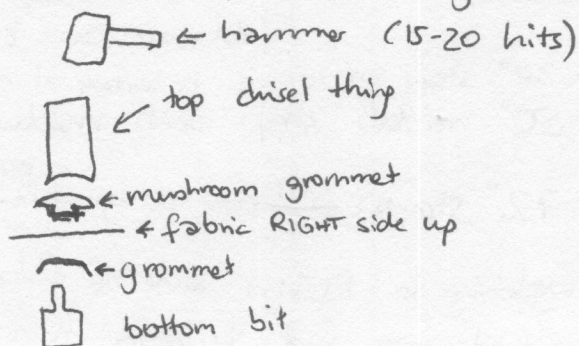 hammer (15-20 hits)
top chisel thing
mushroom grommet
fabric RIGHT side up
grommet
bottom bit